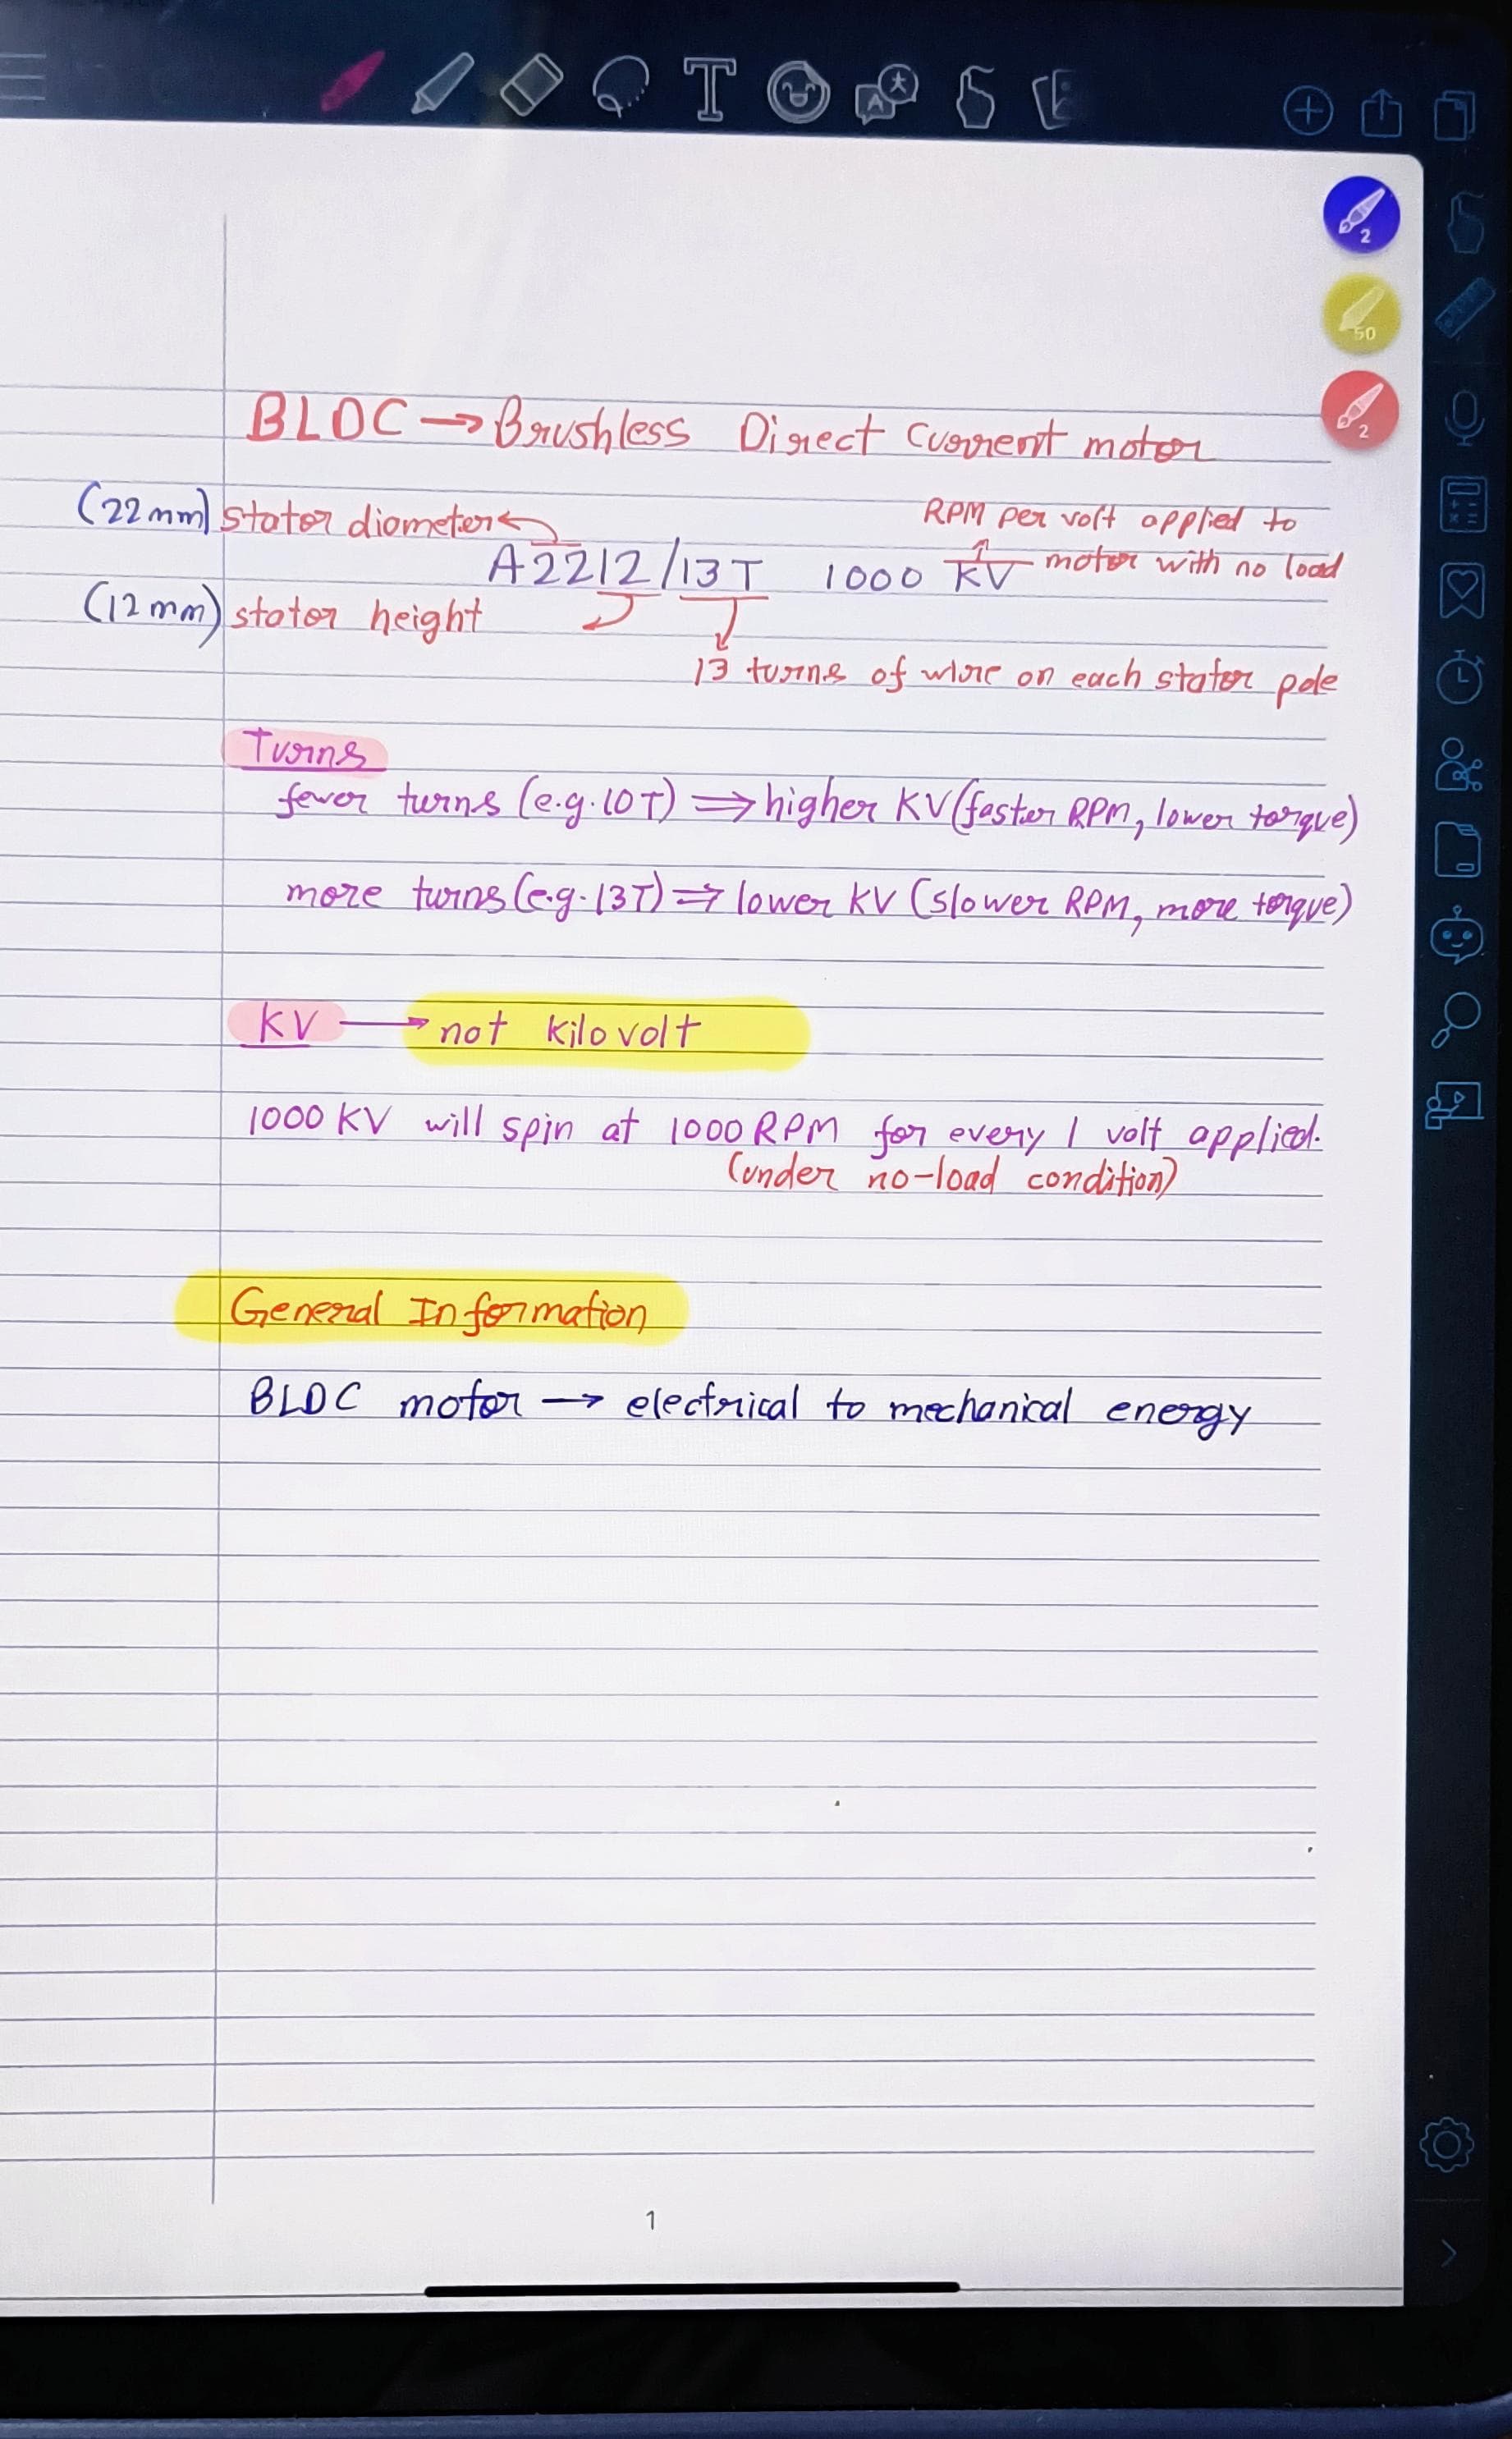 BLDC → Brushless Direct Current motor
(22mm) stator diameter
RPM per volt applied to
motor with no load
A2212/13T 1000 KV
(12mm) stator height
13 turns of wire on each stator pole
Turns
fewer turns (e.g. 10T) ⇒ higher KV (faster RPM, lower torque)
more turns (e.g. 13T) ⇒ lower KV (slower RPM, more torque)
KV → not kilovolt
1000 KV will spin at 1000 RPM for every 1 volt applied.
(under no-load condition)
General Information
BLDC motor → electrical to mechanical energy
1
T
2
50
2